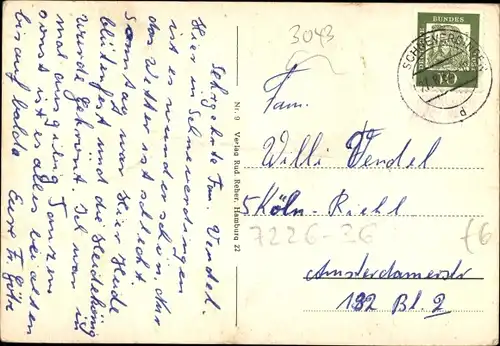 Sehrgeehrte Fam. Vendel.
Hier in Schneverdingen
ist es wunderschön, nur
das Wetter ist schlecht
Sonntag war hier Heide
blütenfest und die Heidekönig
wurde gekrönt. Ich war
mal im ganzen
sonst ist es alles bei alten
bis auf balde Eure Fr. Götze
Nr. 9 Verlag Rud. Reher, Hamburg 22
3043
DEUTSCHE BUNDESPOST
10
SCHNEVERDINGEN
d
Fam.
Willi Vendel
5 Köln-Riehl
7226-26
f6
Amsterdamerstr
192 Bl. 2